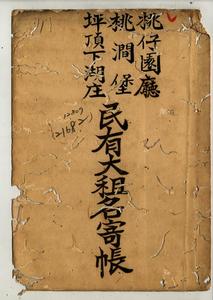 桃仔園廳
桃澗堡
坪頂下湖庄
民有大租名寄帳